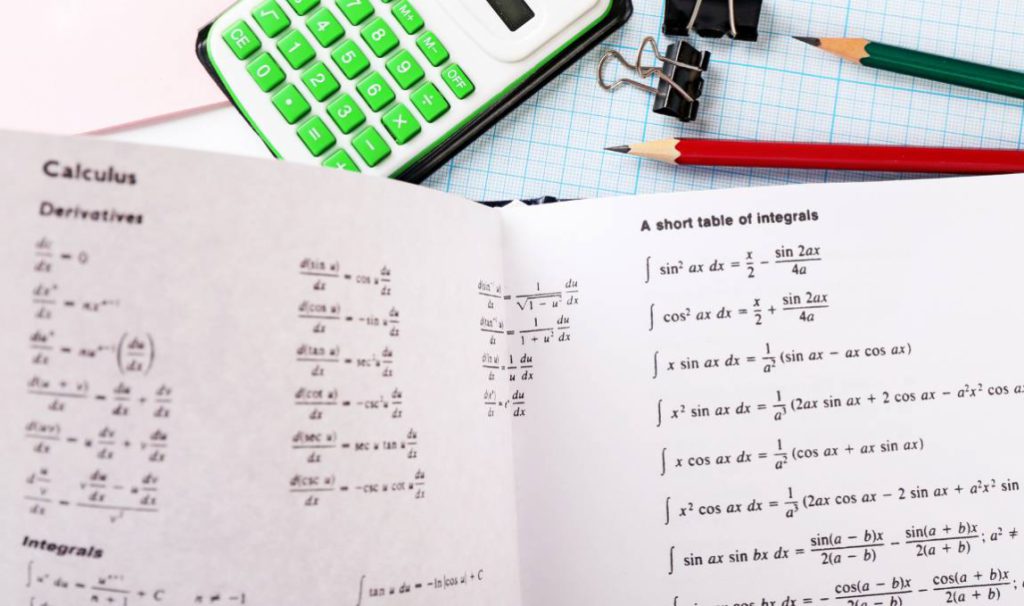 7 M+
√ 4 8 M-
CE 1 5 9 OFF
0 2 6 ÷
• 3 ×
= −
+
Calculus
Derivatives
dc/dx = 0
dxⁿ/dx = nxⁿ⁻¹
duⁿ/dx = nuⁿ⁻¹(du/dx)
d(u + v)/dx = du/dx + dv/dx
d(uv)/dx = u dv/dx + v du/dx
d(u/v)/dx = (v du/dx − u dv/dx)/v²
d(sin u)/dx = cos u du/dx
d(cos u)/dx = −sin u du/dx
d(tan u)/dx = sec² u du/dx
d(cot u)/dx = −csc² u du/dx
d(sec u)/dx = sec u tan u du/dx
d(csc u)/dx = −csc u cot u du/dx
d(sin⁻¹ u)/dx = 1/√(1 − u²) du/dx
d(tan⁻¹ u)/dx = 1/(1 + u²) du/dx
d(ln u)/dx = 1/u du/dx
d(eᵘ)/dx = eᵘ du/dx
Integrals
∫ uⁿ du = uⁿ⁺¹/(n + 1) + C n ≠ −1
∫ tan u du = −ln|cos u| + C
A short table of integrals
∫ sin² ax dx = x/2 − sin 2ax/4a
∫ cos² ax dx = x/2 + sin 2ax/4a
∫ x sin ax dx = 1/a² (sin ax − ax cos ax)
∫ x² sin ax dx = 1/a³ (2ax sin ax + 2 cos ax − a²x² cos ax
∫ x cos ax dx = 1/a² (cos ax + ax sin ax)
∫ x² cos ax dx = 1/a³ (2ax cos ax − 2 sin ax + a²x² sin
∫ sin ax sin bx dx = sin(a − b)x/2(a − b) − sin(a + b)x/2(a + b); a² ≠
cos bx dx = − cos(a − b)x/2(a − b) − cos(a + b)x/2(a + b);